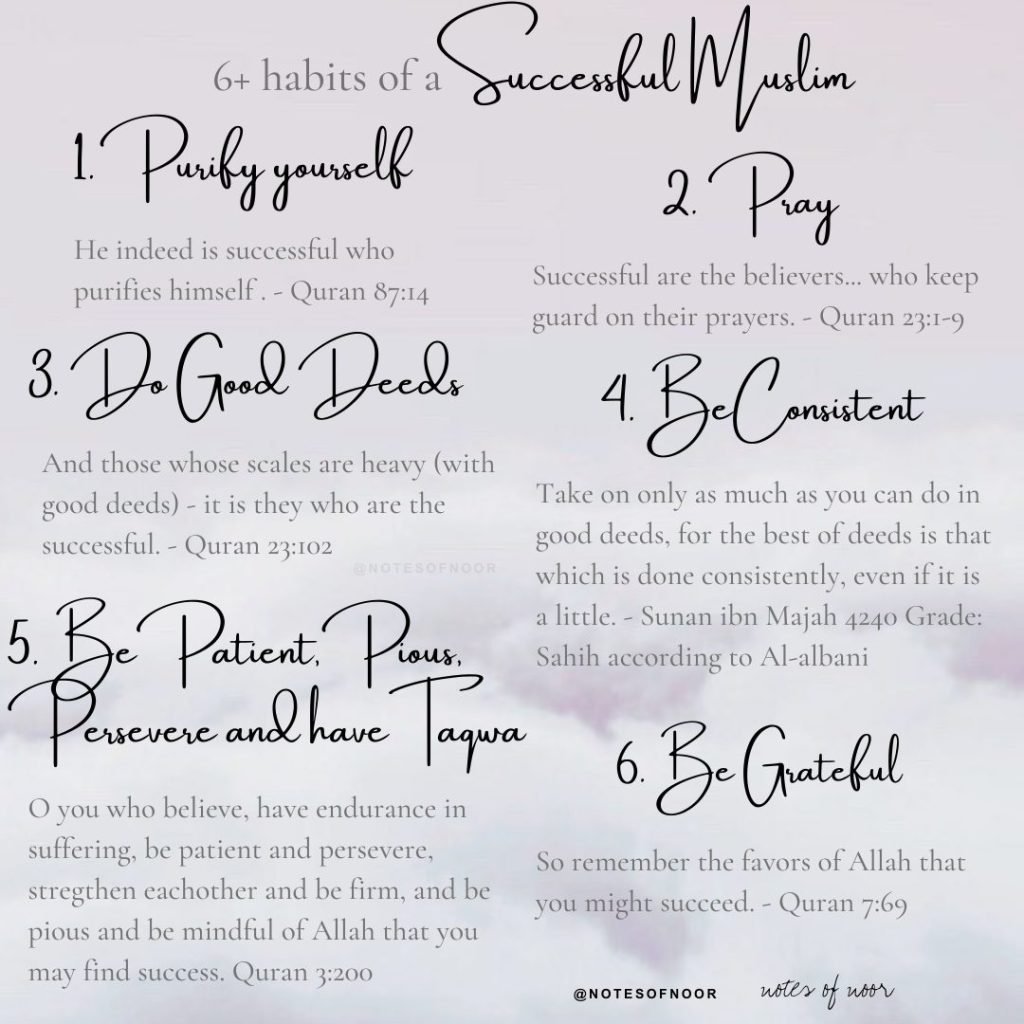 6+ habits of a Successful Muslim
1. Purify yourself
He indeed is successful who
purifies himself . - Quran 87:14
2. Pray
Successful are the believers... who keep
guard on their prayers. - Quran 23:1-9
3. Do Good Deeds
And those whose scales are heavy (with
good deeds) - it is they who are the
successful. - Quran 23:102
@NOTESOFNOOR
4. Be Consistent
Take on only as much as you can do in
good deeds, for the best of deeds is that
which is done consistently, even if it is
a little. - Sunan ibn Majah 4240 Grade:
Sahih according to Al-albani
5. Be Patient, Pious,
Persevere and have Taqwa
O you who believe, have endurance in
suffering, be patient and persevere,
stregthen eachother and be firm, and be
pious and be mindful of Allah that you
may find success. Quran 3:200
6. Be Grateful
So remember the favors of Allah that
you might succeed. - Quran 7:69
@NOTESOFNOOR notes of noor